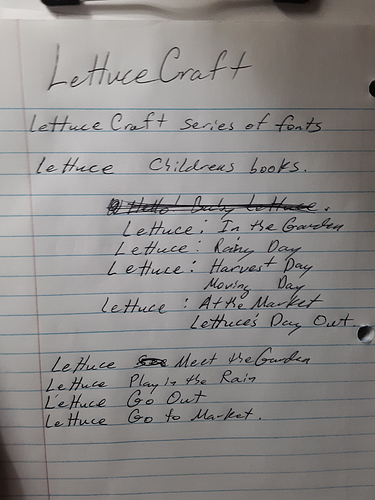 LettuceCraft
Lettuce Craft series of fonts
Lettuce Childrens books.
Hello! Baby Lettuce.
Lettuce: In the Garden
Lettuce: Rainy Day
Lettuce: Harvest Day
Moving Day
Lettuce: At the Market
Lettuce's Day Out.
Lettuce Meet the Garden
Lettuce Play in the Rain
Lettuce Go Out
Lettuce Go to Market.